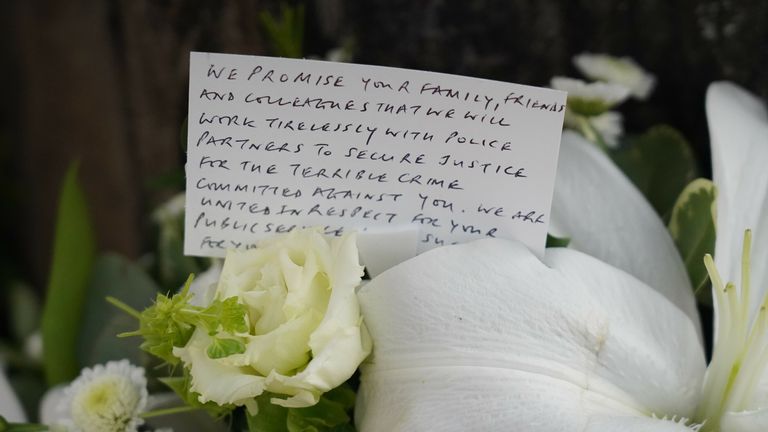 WE PROMISE YOUR FAMILY, FRIENDS
AND COLLEAGUES THAT WE WILL
WORK TIRELESSLY WITH POLICE
PARTNERS TO SECURE JUSTICE
FOR THE TERRIBLE CRIME
COMMITTED AGAINST YOU. WE ARE
UNITED IN RESPECT FOR YOUR
PUBLIC SERVICE
FOR